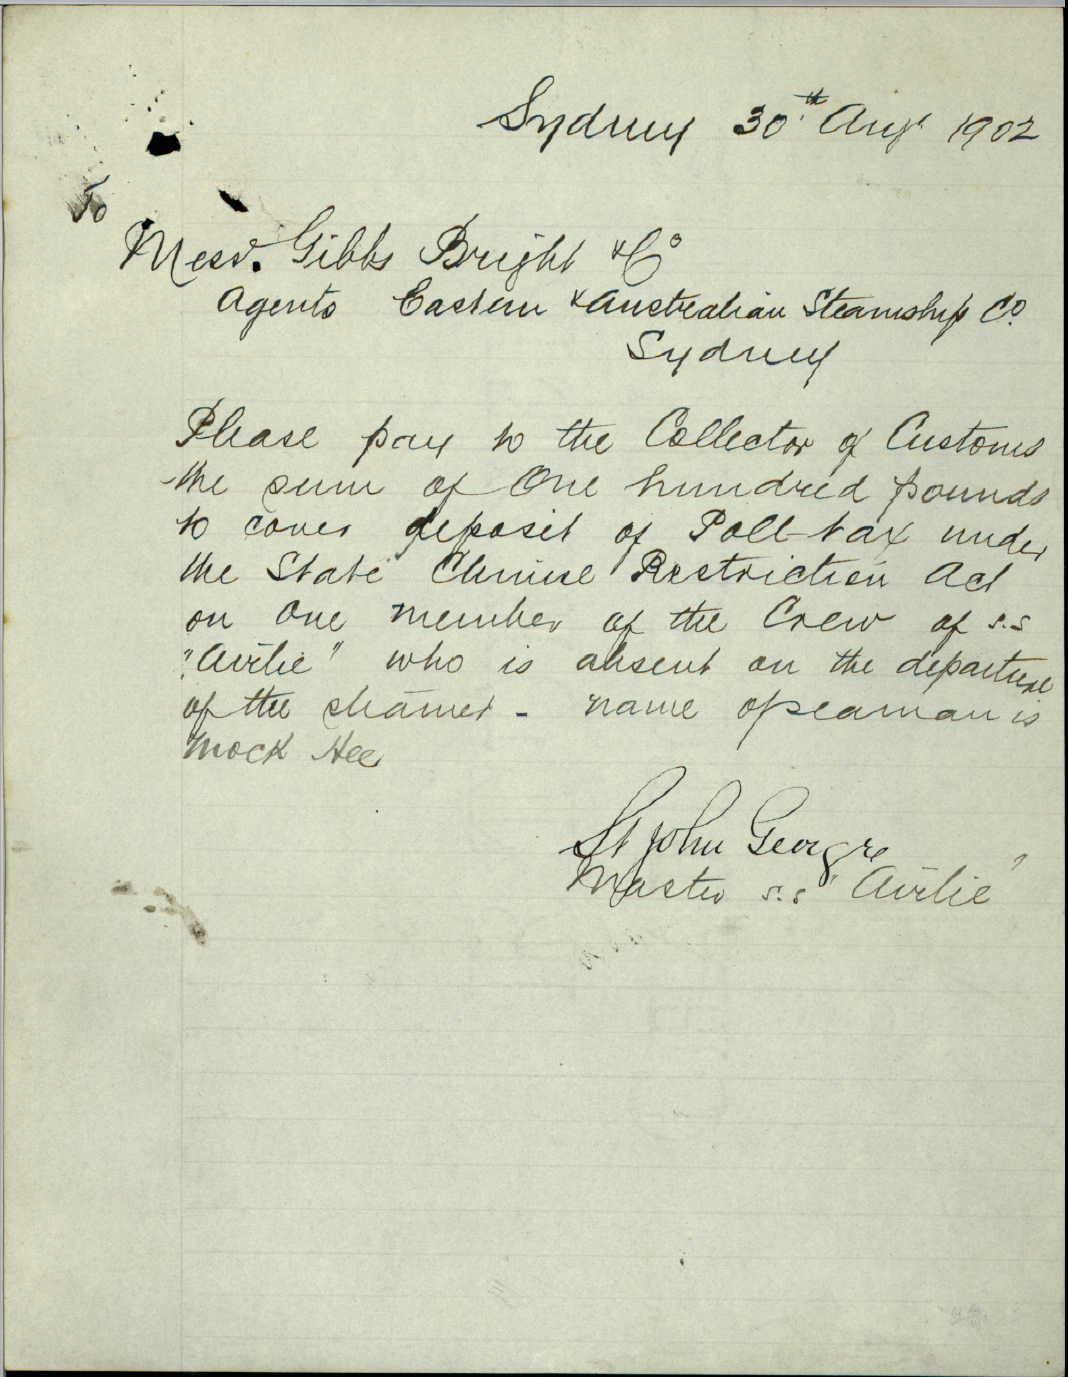 Sydney 30th Augt 1902
To
Messrs. Gibbs Bright & Co
Agents Eastern & Australian Steamship Co.
Sydney
Please pay to the Collector of Customs
the sum of One hundred pounds
to cover deposit of Poll-tax under
the State Chinese Restriction Act
on one member of the Crew of s.s
"Airlie" who is absent on the departure
of the steamer - name of seaman is
Mock Hee
St John George
Master s.s "Airlie"